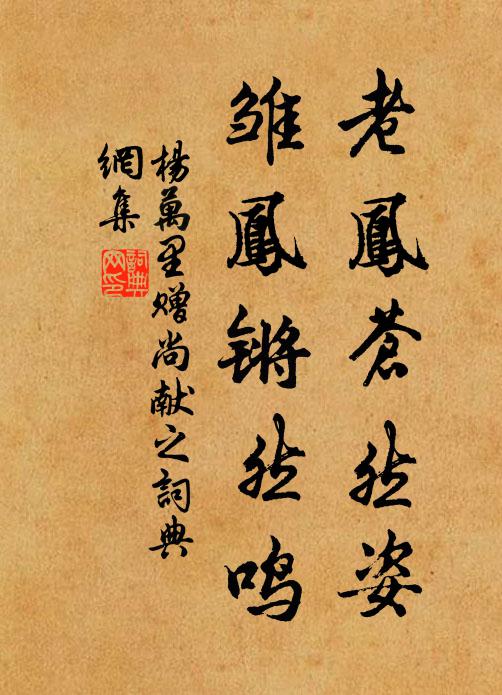 老鳳蒼然姿
雛鳳锵然鸣
楊萬里赠尚献之詞典
網集
詞典
网印